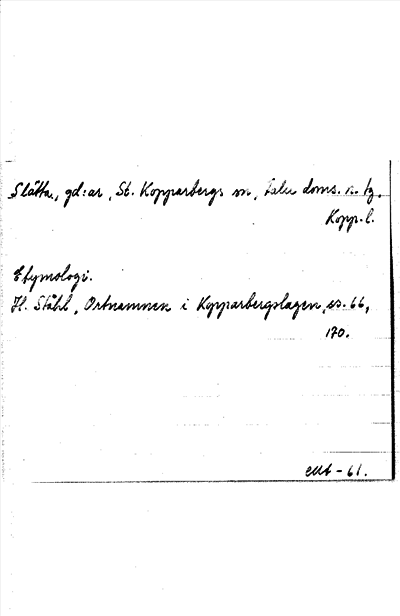 Slätta, gd:ar, St. Kopparbergs sn, Falu doms. n. tg,
Kopp. l.
Etymologi.
H. Ståhl, Ortnamnen i Kopparbergslagen, ss. 66,
170.
-61.